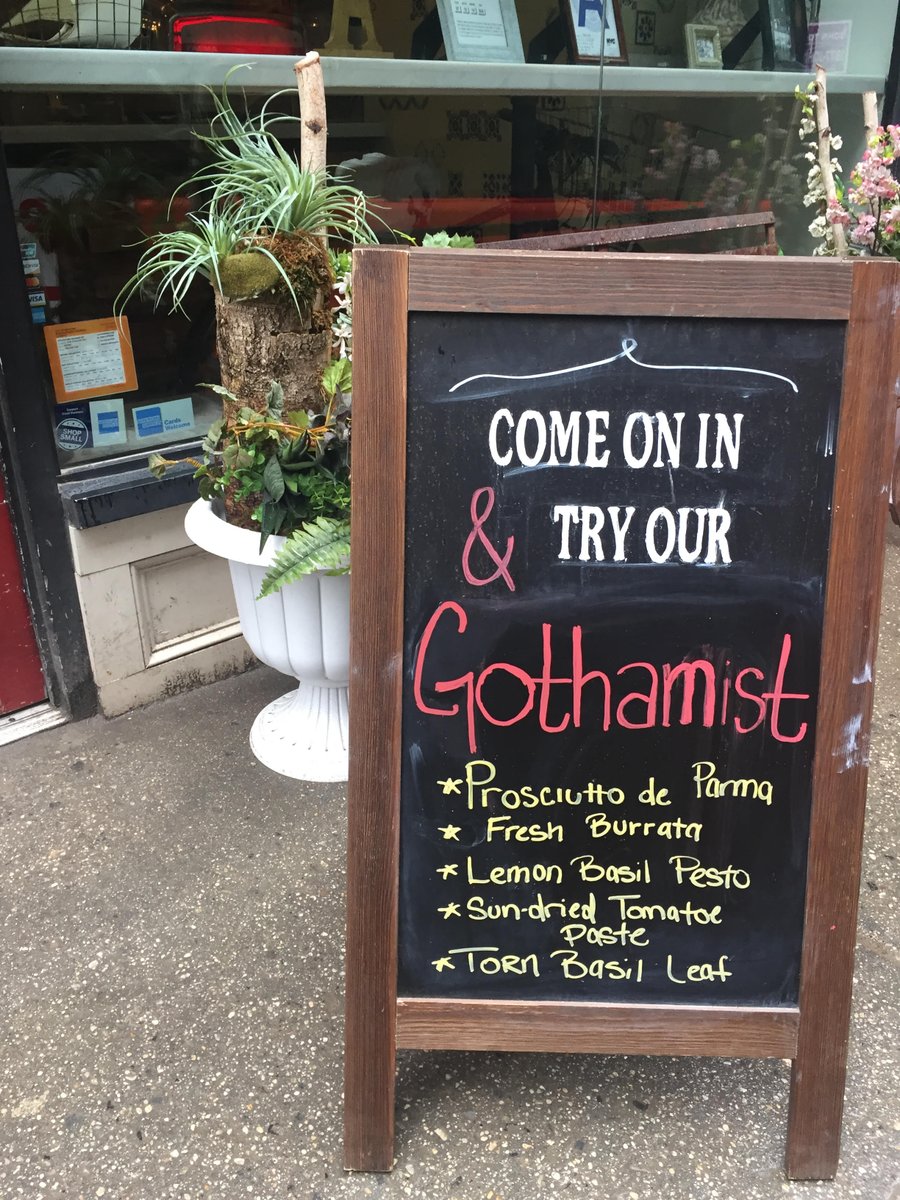 COME ON IN
& TRY OUR
Gothamist
*Prosciutto de Parma
* Fresh Burrata
* Lemon Basil Pesto
* Sun-dried Tomatoe
Paste
* Torn Basil Leaf
VISA
SHOP
SMALL
Cards
Welcome